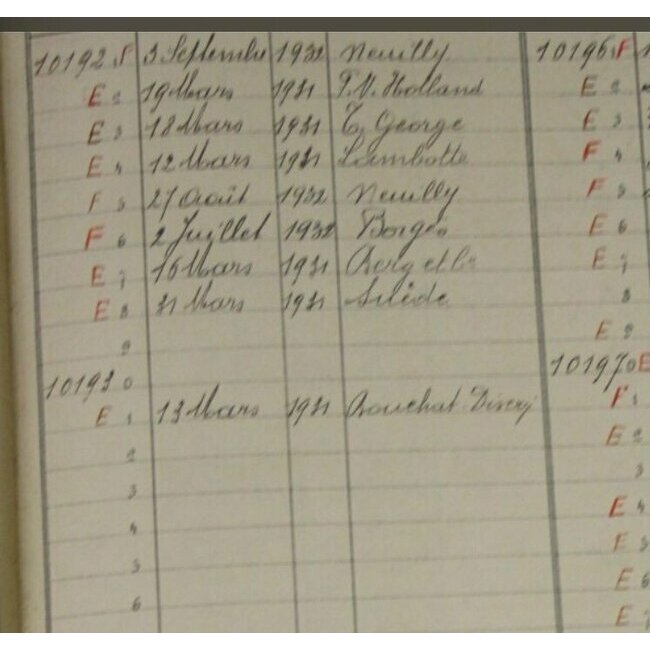 10192 1 F 3 Septembre 1932 Neuilly 10196 1 F
E 2 19 Mars 1931 Holland E 2
E 3 18 Mars 1931 George E 3
E 4 12 Mars 1931 Lambotte F 4
F 5 27 Août 1932 Neuilly F 5
F 6 2 Juillet 1932 Borgeo E 6
E 7 16 Mars 1931 E 7
E 8 31 Mars 1931 Suède 8
9 E 9
10193 0 10197 0 E
E 1 13 Mars 1931 F 1
2 E 2
3 3
4 E 4
5 E 5
6 E 6
E 7